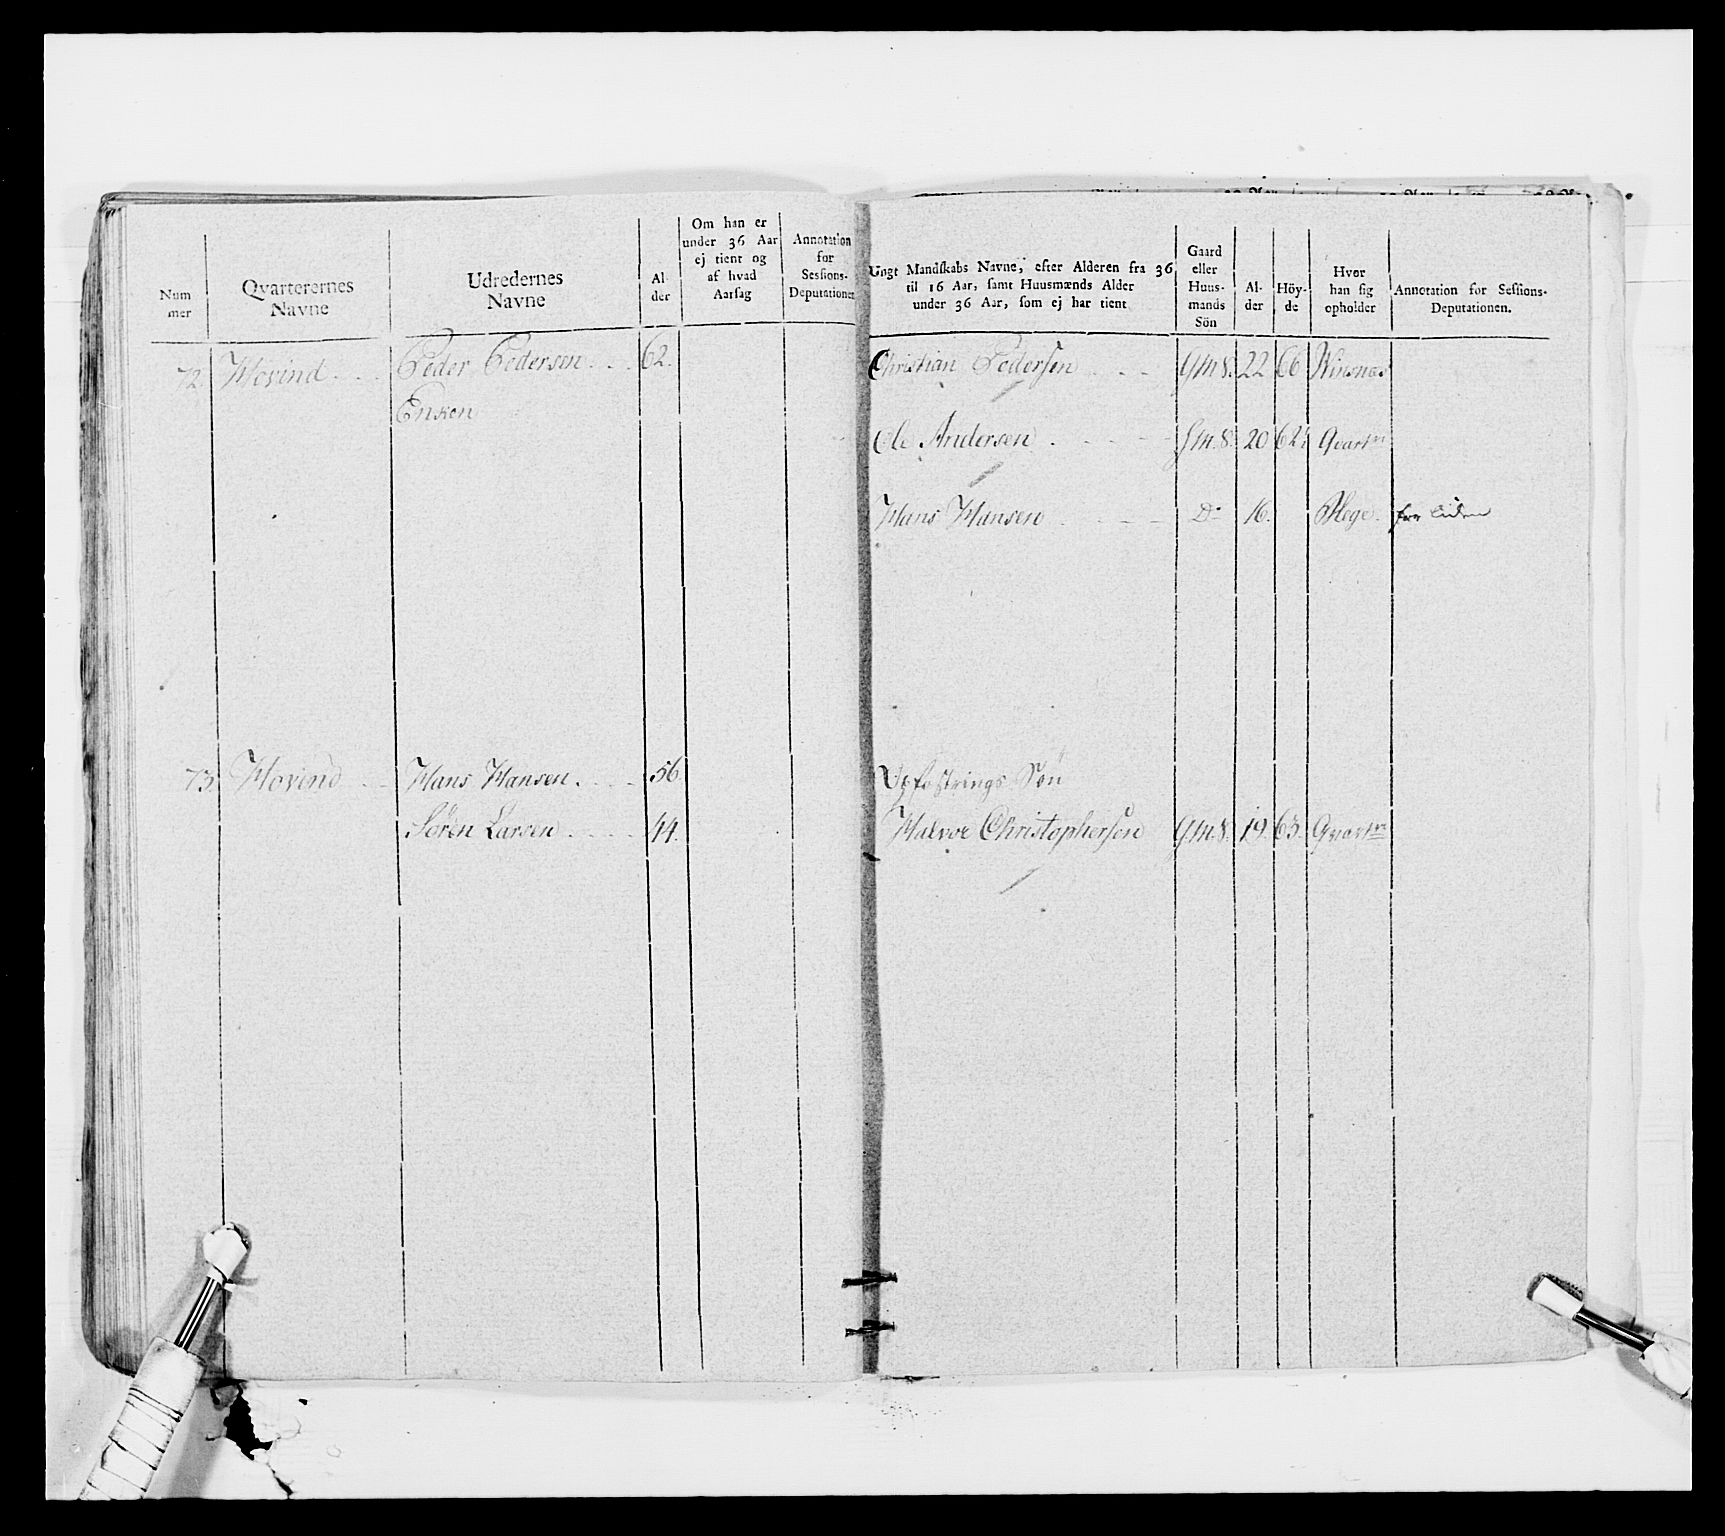 Num
mer
Qvarterernes
Navne
Udredernes
Navne
Al-
der
Om han er
under 36 Aar
ej tient og
af hvad
Aarsag
Annotation
for
Sessions-
Deputationen
72. Hovind Peder Pedersen 62.
Enken
73. Hovind Hans Hansen 56
Sören Larsen 44.
Ungt Mandskabs Navne, efter Alderen fra 36
til 16 Aar, samt Huusmænds Alder
under 36 Aar, som ej har tient
Gaard
eller
Huus-
mands
Sön
Al-
der
Höy-
de
Hvor
han sig
opholder
Annotation for Sessions-
Deputationen.
Christian Pedersen G M S. 22 66 Winsnæs
Ole Andersen G M S. 20 62 Qvart
Hans Hansen D° 16.
Opfostrings Sön
Halvor Christophersen G M S. 19. 63. Qvart